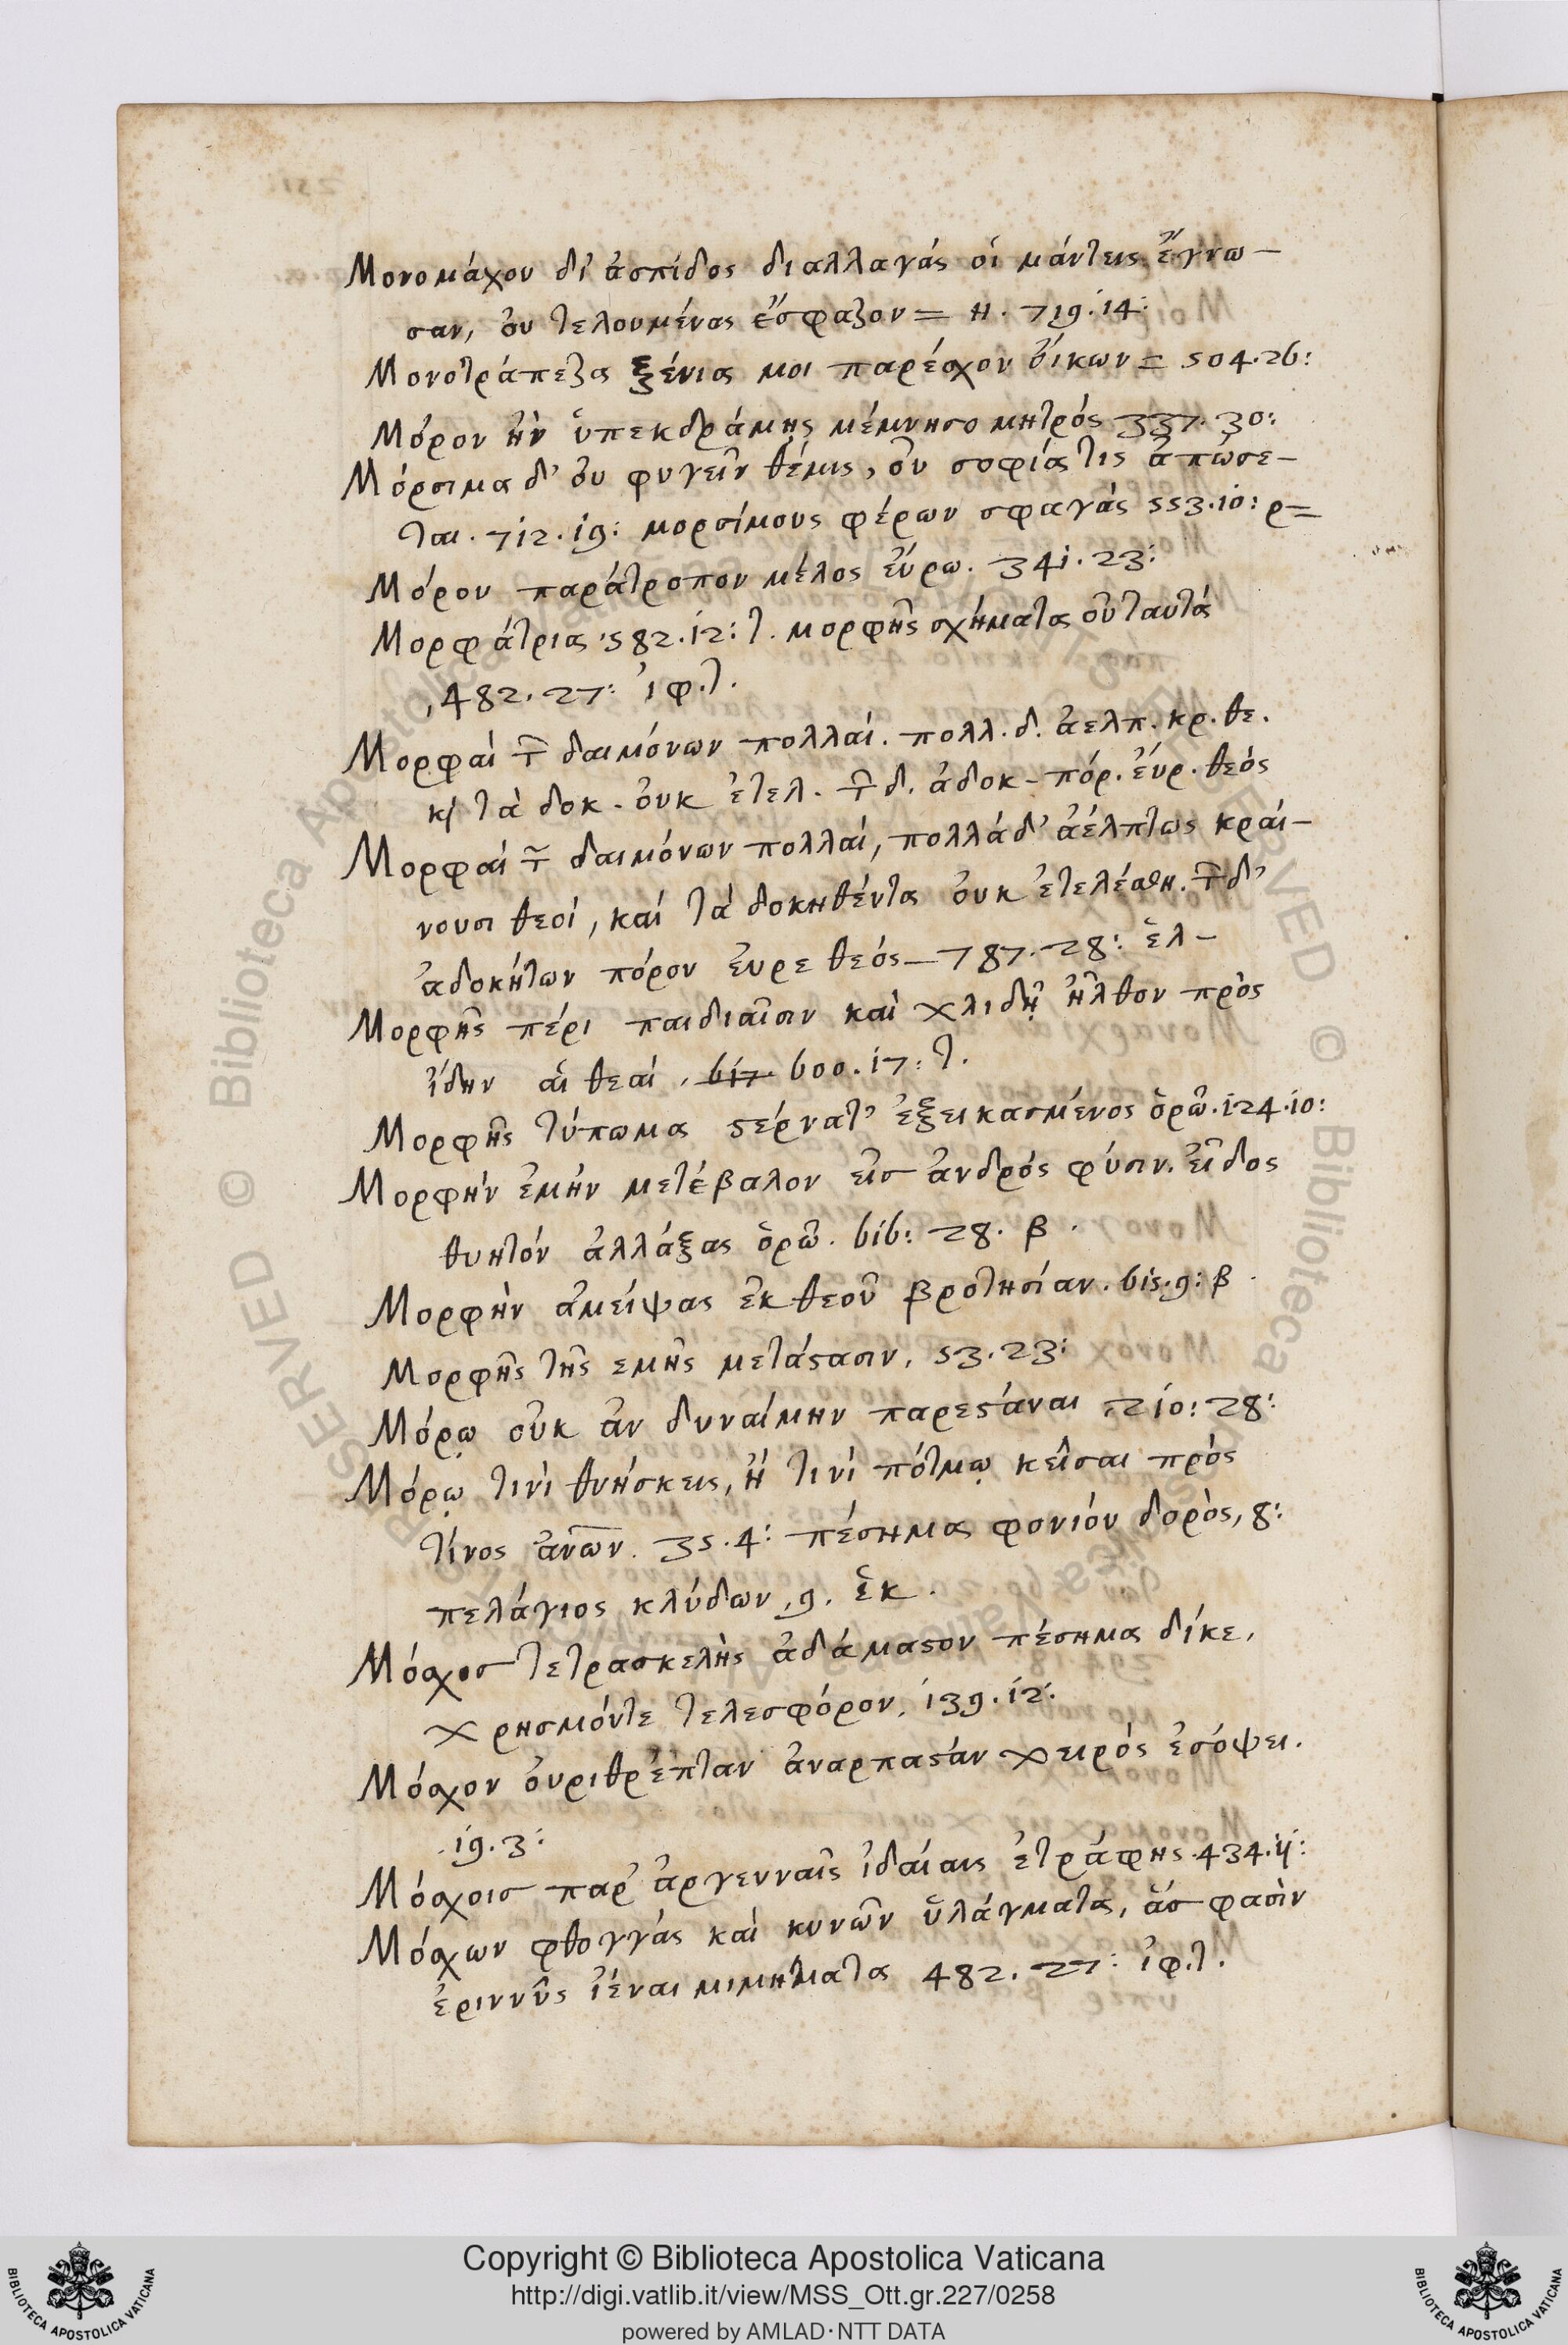 Μονομάχου δι' ἀσπίδος διαλλαγάς οἱ μάντεις ἔγνω-
σαν, ὀυ τελουμένας ἔσφαζον = η. 719. 14:
Μονοτράπεζα ξένια μοι παρέσχον ὄικων = 504. 26:
Μόρον ἣν ὑπεκδράμῃς μέμνησο μητρός 337. 30:
Μόρσιμα δ' ὀυ φυγεῖν θέμις, ὀυ σοφίᾳ τις ἀπώσε-
ται. 712. 19: μορσίμους φέρων σφαγάς 553. 10: ρ=
Μόρον παράτροπον μέλος ἕυρω. 341. 23:
Μορφάτρια 582. 12: τ. μορφῆς σχήματα ὀυ ταυτά
, 482. 27: ἰφ. τ.
Μορφαί τῶν δαιμόνων πολλαί. πολλ. δ. ἀελπ. κρ. θε.
κὶ τὰ δοκ. ὀυκ ἐτελ. τῶν δ. ἀδοκ- πόρ. ἑύρ. θεός
Μορφαί τῶν δαιμόνων πολλαί, πολλά δ' ἀέλπτως κράι-
νουσι θεοί, καί τά δοκηθέντα ὀυκ ἐτελέσθη. τῶν δ'
ἀδοκήτων πόρον ἑυρε θεός — 787. 28: ἑλ-
Μορφῆς πέρι παιδιαῖσιν καὶ χλιδῇ ἦλθον πρὸς
ἴδην αἱ θεαί, 617 600. 17: τ.
Μορφῆς τύπωμα στέρνατ' ἐξεικασμένος ὁρῶ. 124. 10:
Μορφήν ἐμήν μετέβαλον εἰς ἀνδρός φύσιν. εἶδος
θνητόν ἀλλάξας ὁρῶ. 616: 28. β.
Μορφὴν ἀμείψας ἐκ θεοῦ βροτησίαν. 615. 9: β.
Μορφῆς τῆς εμῆς μετάστασιν, 53. 23:
Μόρῳ οὐκ ἄν δυναίμην παρεστάναι 210: 28:
Μόρῳ τινὶ θνήσκεις, ἢ τινί πότμῳ κεῖσαι πρὸς
τίνος ἀνων. 35. 4: πέσημα φονίου δορὸς, 8:
πελάγιος κλύδων, 9. ἑκ.
Μόσχος τετρασκελὴς ἀδάμαστον πέσημα δίκε,
χρησμόντε τελεσφόρον, 139. 12:
Μόσχον ὀυριθρέπταν ἀναρπαστάν χειρός ἐσόψει.
. 19. 3:
Μόσχοισ παρ' ἀργενναῖς ἰδαίαις ἐτράφης. 434. 11:
Μόσχων φθογγάς καὶ κυνῶν ὑλάγματα, ἅσ φασὶν
ἐριννῦς ἱέναι μιμήματα 482. 27: ἰφ. τ.
Copyright © Biblioteca Apostolica Vaticana
http://digi.vatlib.it/view/MSS_Ott.gr.227/0258
powered by AMLAD·NTT DATA